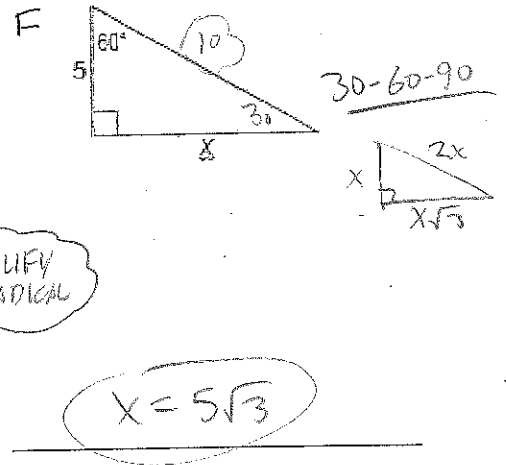 F
60°
10
5
30
x
30-60-90
2x
x
x√3
LIFY
ADICAL
x = 5√3